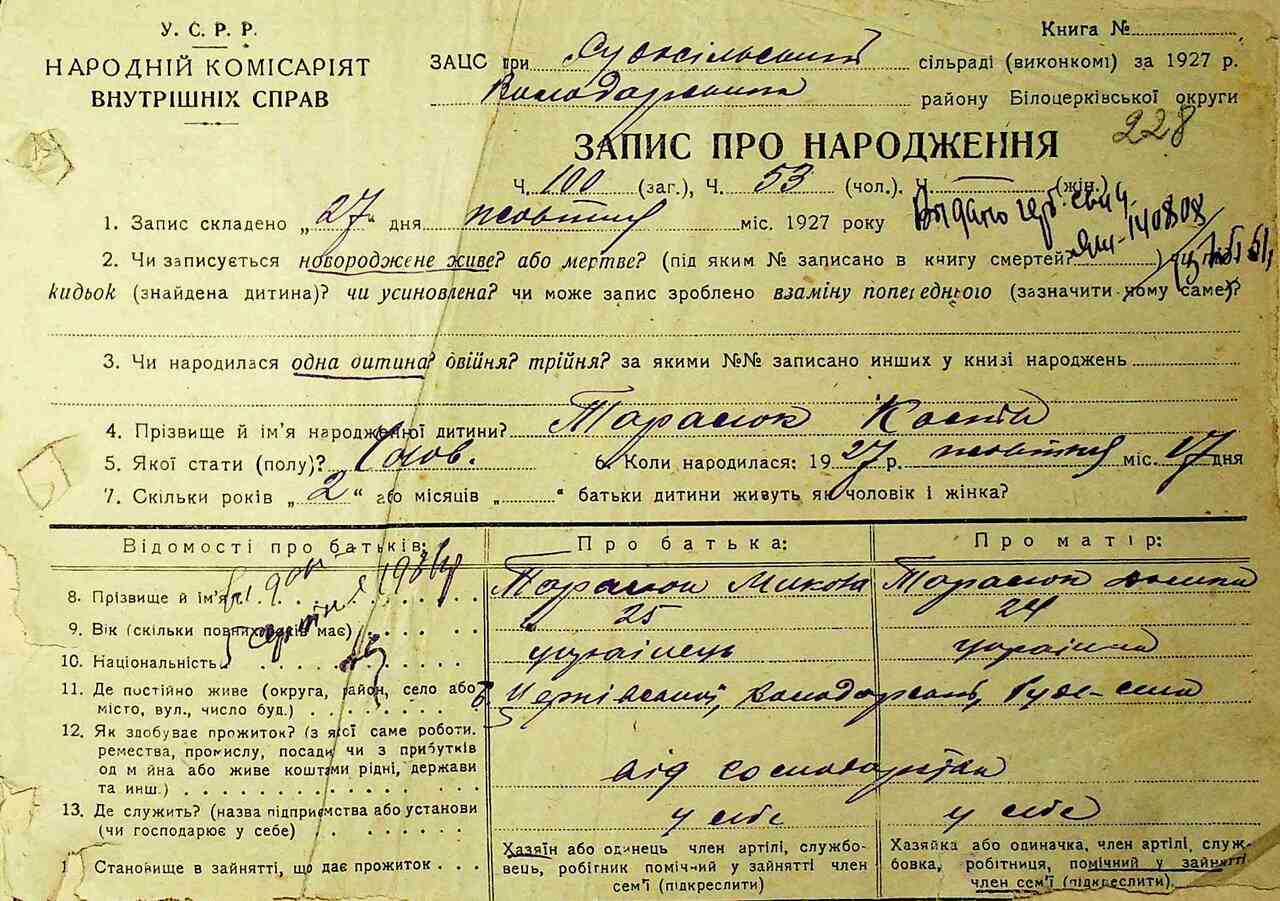 У. С. Р. Р.
НАРОДНІЙ КОМІСАРІЯТ
ВНУТРІШНІХ СПРАВ
Книга №
ЗАЦС при сільраді (виконкомі) за 1927 р.
району Білоцерківської округи
228
ЗАПИС ПРО НАРОДЖЕННЯ
Ч. 100 (заг.), Ч. 53 (чол.). Ч. — (жін.)
1. Запис складено „27" дня жовтня міс. 1927 року
Выдано
2. Чи записується новороджене живе? або мертве? (під яким № записано в книгу смертей?
кидьок (знайдена дитина)? чи усиновлена? чи може запис зроблено взаміну попереднього (зазначити чому саме)?
3. Чи народилася одна дитина? двійня? трійня? за якими №№ записано инших у книзі народжень
4. Прізвище й ім'я народженної дитини? Тарасюк Костя
5. Якої стати (полу)? Чолов. 6. Коли народилася: 1927 р. жовтня міс. 17 дня
7. Скільки років „2" або місяців „ " батьки дитини живуть як чоловік і жінка?
Відомості про батьків: Про батька: Про матір:
8. Прізвище й ім'я Тарасюк Микола Тарасюк
9. Вік (скільки повних років має) 25 24
10. Національність українець українка
11. Де постійно живе (округа, район, село або
місто, вул., число буд.)
12. Як здобуває прожиток? (з якої саме роботи.
ремества, промислу, посади чи з прибутків
од майна або живе коштами рідні, держави
та инш.) від
13. Де служить? (назва підприємства або установи
(чи господарює у себе) у себе у себе
1 Становище в зайнятті, що дає прожиток
Хазяїн або одинець член артілі, службо-
вець, робітник помічний у зайнятті член
сем'ї (підкреслити)
Хазяйка або одиначка, член артілі, служ-
бовка, робітниця, помічний у зайнятті
член сем'ї (підкреслити).